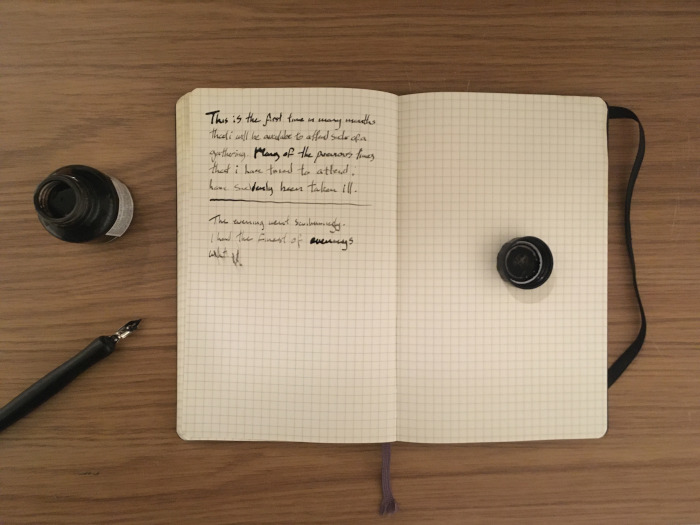 This is the first time in many months
that i will be available to attend such a
gathering. Many of the previous times
that i have tried to attend i
have suddenly been taken ill.
The evening went swimmingly.
i had the finest of evenings